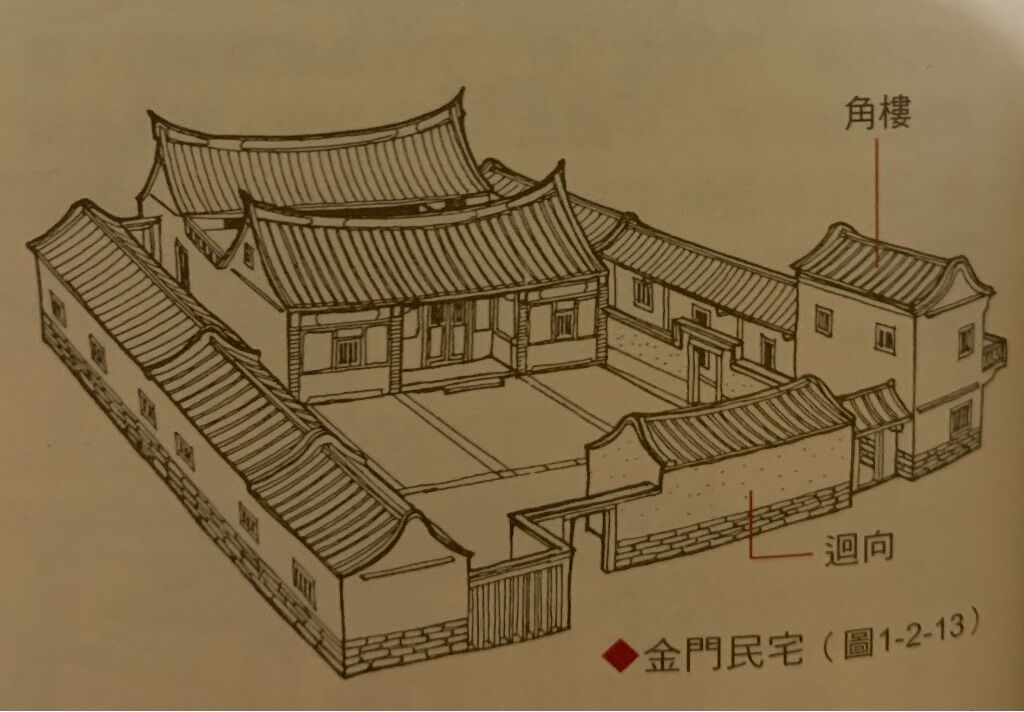 角樓
迴向
◆金門民宅（圖1-2-13）